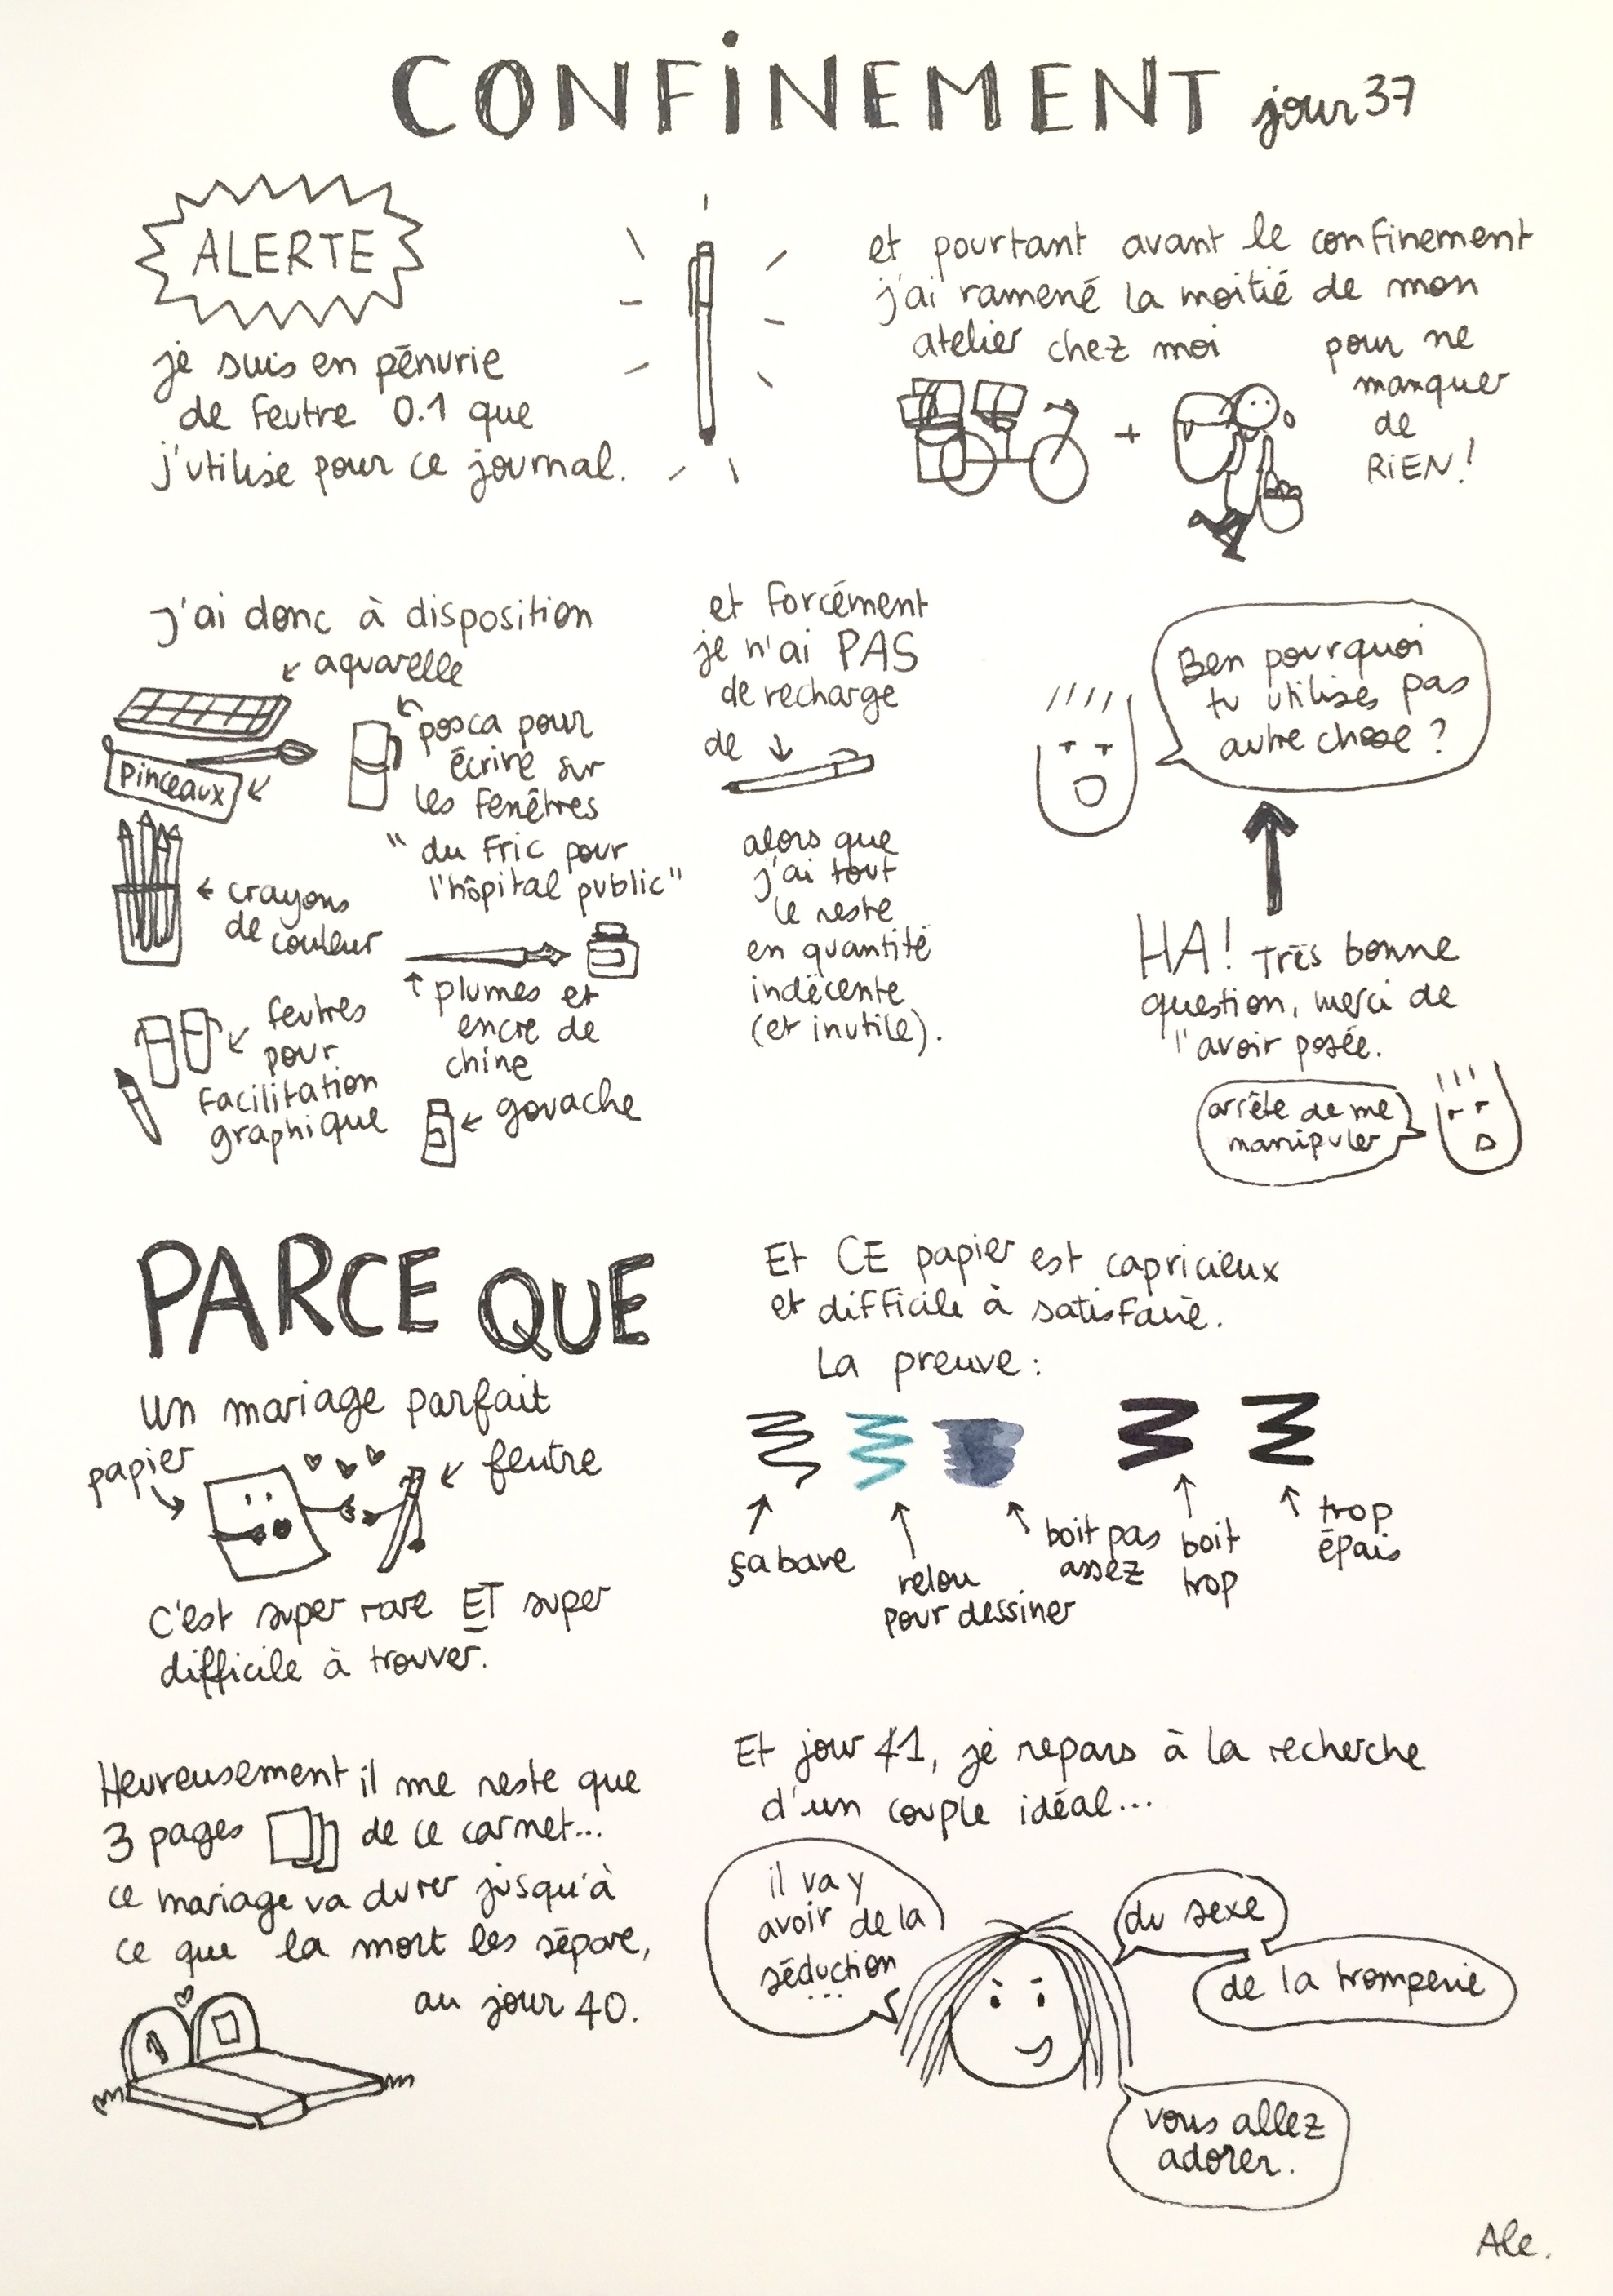 CONFINEMENT jour 37
ALERTE
je suis en pénurie
de feutre 0.1 que
j'utilise pour ce journal.
et pourtant avant le confinement
j'ai ramené la moitié de mon
atelier chez moi
pour ne
manquer
de
RIEN!
+
j'ai donc à disposition
aquarelle
pinceaux
posca pour
écrire sur
les fenêtres
"du fric pour
l'hôpital public"
crayons
de couleur
plumes et
encre de
chine
feutres
pour
facilitation
graphique
gouache
et forcément
je n'ai PAS
de recharge
de
alors que
j'ai tout
le reste
en quantité
indécente
(et inutile).
Ben pourquoi
tu utilises pas
autre chose ?
HA! Très bonne
question, merci de
l'avoir posée.
arrête de me
manipuler
PARCE QUE
un mariage parfait
papier
feutre
c'est super rare ET super
difficile à trouver.
Et CE papier est capricieux
et difficile à satisfaire.
La preuve :
ça bave
relou
pour dessiner
boit pas
assez
boit
trop
trop
épais
Heureusement il me reste que
3 pages de ce carnet...
ce mariage va durer jusqu'à
ce que la mort les sépare,
au jour 40.
Et jour 41, je repars à la recherche
d'un couple idéal...
il va y
avoir de la
séduction
...
du sexe
de la tromperie
vous allez
adorer.
Ale.